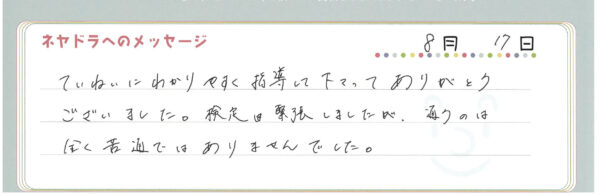 ネヤドラへのメッセージ
8月 17日
ていねいにわかりやすく指導して下さってありがとう
ございました。検定は緊張しましたが、通うのは
全く苦痛ではありませんでした。